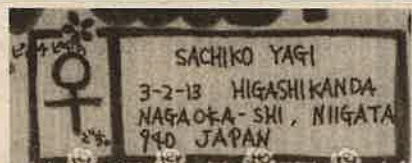 SACHIKO YAGI
3-2-13 HIGASHIKANDA
NAGAOKA-SHI, NIIGATA
940 JAPAN